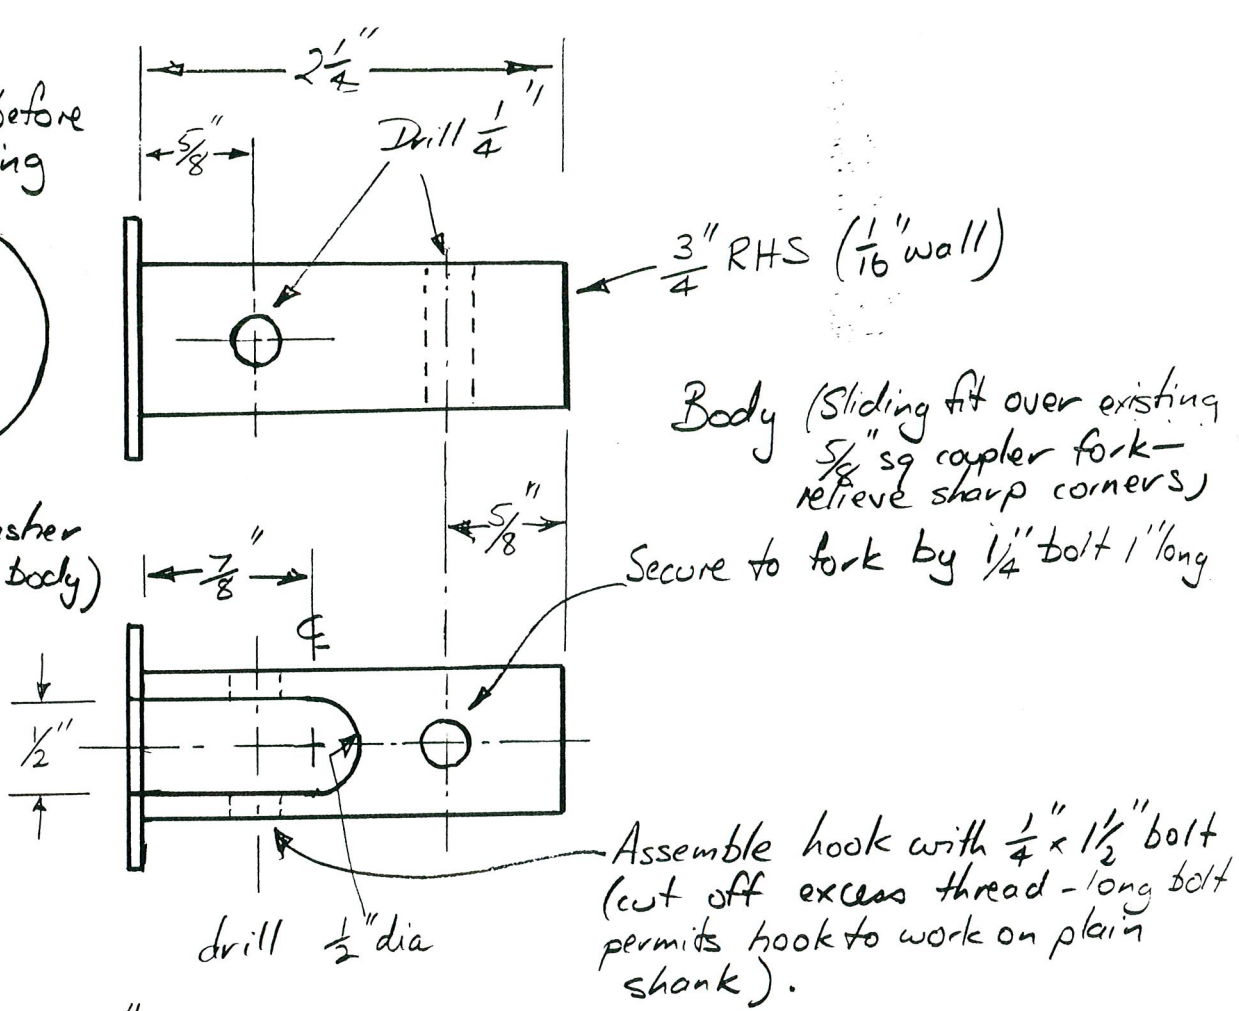 2 1/4"
before
5/8"
Drill 1/4"
ing
3/4" RHS (1/16" wall)
Body (Sliding fit over existing
5/8" sq coupler fork-
relieve sharp corners)
5/8"
asher
body)
7/8"
Secure to fork by 1/4" bolt 1" long
℄
1/2"
Assemble hook with 1/4" x 1 1/2" bolt
(cut off excess thread - long bolt
permits hook to work on plain
shank).
drill 1/2" dia
"